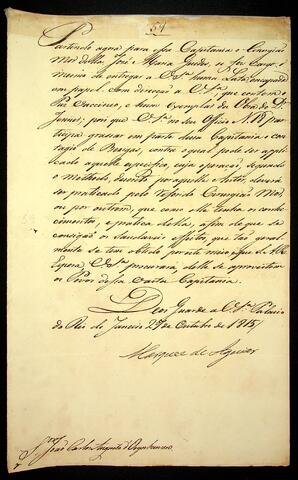 51
Partindo agora para essa Capitania o Cirurgião
Mor della José Maria Guedes, se fez Cargo o
mesmo de entregar a V.Sa. huma Lata, encapada
em papel, com direcção a V.Sa., que contem o
Puz Vaccinico, e hum Exemplar da Obra do Dr.
Jenner; pois que V.Sa. no seu Officio N.
participa grassar em parte dessa Capitania o con-
tagio de Bexigas, contra o qual pode ser appli-
cado aquelle especifico, cuja operação, segundo
o Methodo, descrito por aquelle Autor, deverá
ser praticada pelo referido Cirurgião Mor,
ou por outrem, que como elle tenha os conhe-
cimentos, e pratica della, a fim de que se
consigão os saudaveis effeitos, que tão geral-
mente se tem obtido por este meio; e que S.A.R.
Espera V.Sa. procurará, delle se aproveitem
os Povos dessa vasta Capitania.
Deos Guarde a V.Sa. Palacio
do Rio de Janeiro 27 de Outubro de 1815
Marquez de Aguiar
Snor. João Carlos Augusto d'Oeynhausen